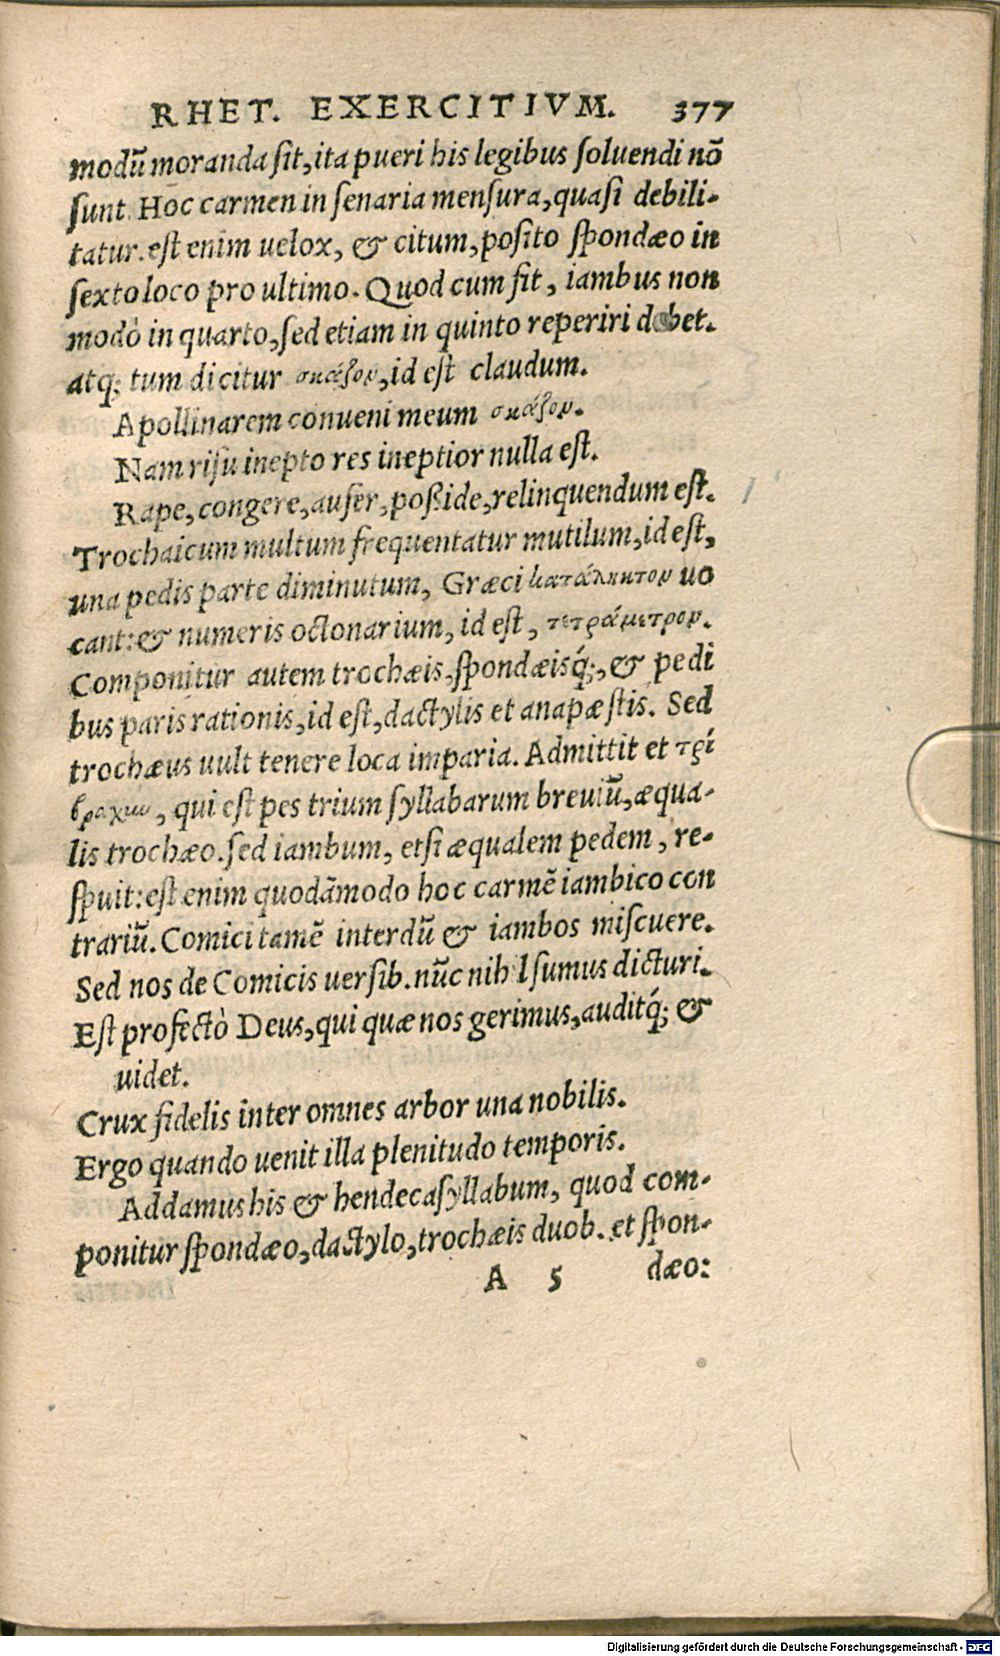 RHET. EXERCITIVM. 377
modū moranda ſit, ita pueri his legibus ſoluendi nō
ſunt. Hoc carmen in ſenaria menſura, quaſi debili-
tatur. eſt enim uelox, & citum, poſito ſpondæo in
ſexto loco pro ultimo. Quod cum ſit, iambus non
modò in quarto, ſed etiam in quinto reperiri debet.
atq; tum dicitur σκάζον, id eſt claudum.
Apollinarem conueni meum σκάζον.
Nam riſu inepto res ineptior nulla eſt.
Rape, congere, aufer, poßide, relinquendum eſt.
Trochaicum multum frequentatur mutilum, id eſt,
una pedis parte diminutum, Græci κατάληκτον uo
cant: & numeris octonarium, id eſt, τετράμετρον.
Componitur autem trochæis, ſpondæisq́;, & pedi
bus paris rationis, id eſt, dactylis et anapæſtis. Sed
trochæus uult tenere loca imparia. Admittit et τρί
βραχιω, qui eſt pes trium ſyllabarum breuiū, æqua-
lis trochæo. ſed iambum, etſi æqualem pedem, re-
ſpuit: eſt enim quodāmodo hoc carmē iambico con
trariū. Comici tamē interdū & iambos miſcuere.
Sed nos de Comicis uerſib. nūc nihil ſumus dicturi.
Eſt profectò Deus, qui quæ nos gerimus, auditq́; &
uidet.
Crux fidelis inter omnes arbor una nobilis.
Ergo quando uenit illa plenitudo temporis.
Addamus his & hendecaſyllabum, quod com-
ponitur ſpondæo, dactylo, trochæis duob. et ſpon-
A 5 dæo:
Digitalisierung gefördert durch die Deutsche Forschungsgemeinschaft - DFG